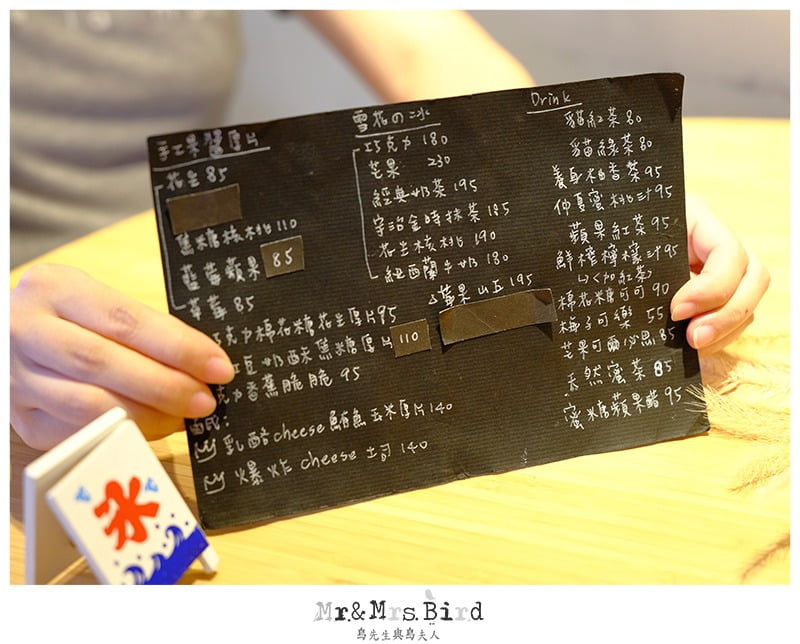 手工果醬厚片
花生 85
焦糖核桃 110
藍莓蘋果 85
草莓 85
巧克力棉花糖花生厚片 95
紅豆奶酥焦糖厚片 110
巧克力香蕉脆脆 95
鹹食:
乳酪cheese鮪魚玉米厚片 140
爆炸 cheese 土司 140
雪花の冰
巧克力 180
芒果 230
經典奶茶 195
宇治金時抹茶 185
花生核桃 190
紐西蘭牛奶 180
195
Drink
貓紅茶 80
貓綠茶 80
養身柚香茶 95
仲夏蜜桃汁 95
蘋果紅茶 95
鮮榨檸檬汁 95
↳(加紅茶)
棉花糖可可 90
梅子可樂 55
芒果可爾必思 85
天然蜜茶 85
蜜糖蘋果醋 95
冰
Mr.&Mrs.Bird
鳥先生與鳥夫人